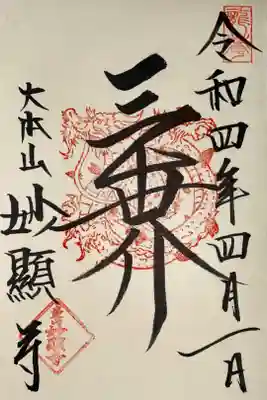 令和四年四月一日
三界
大本山妙顯寺